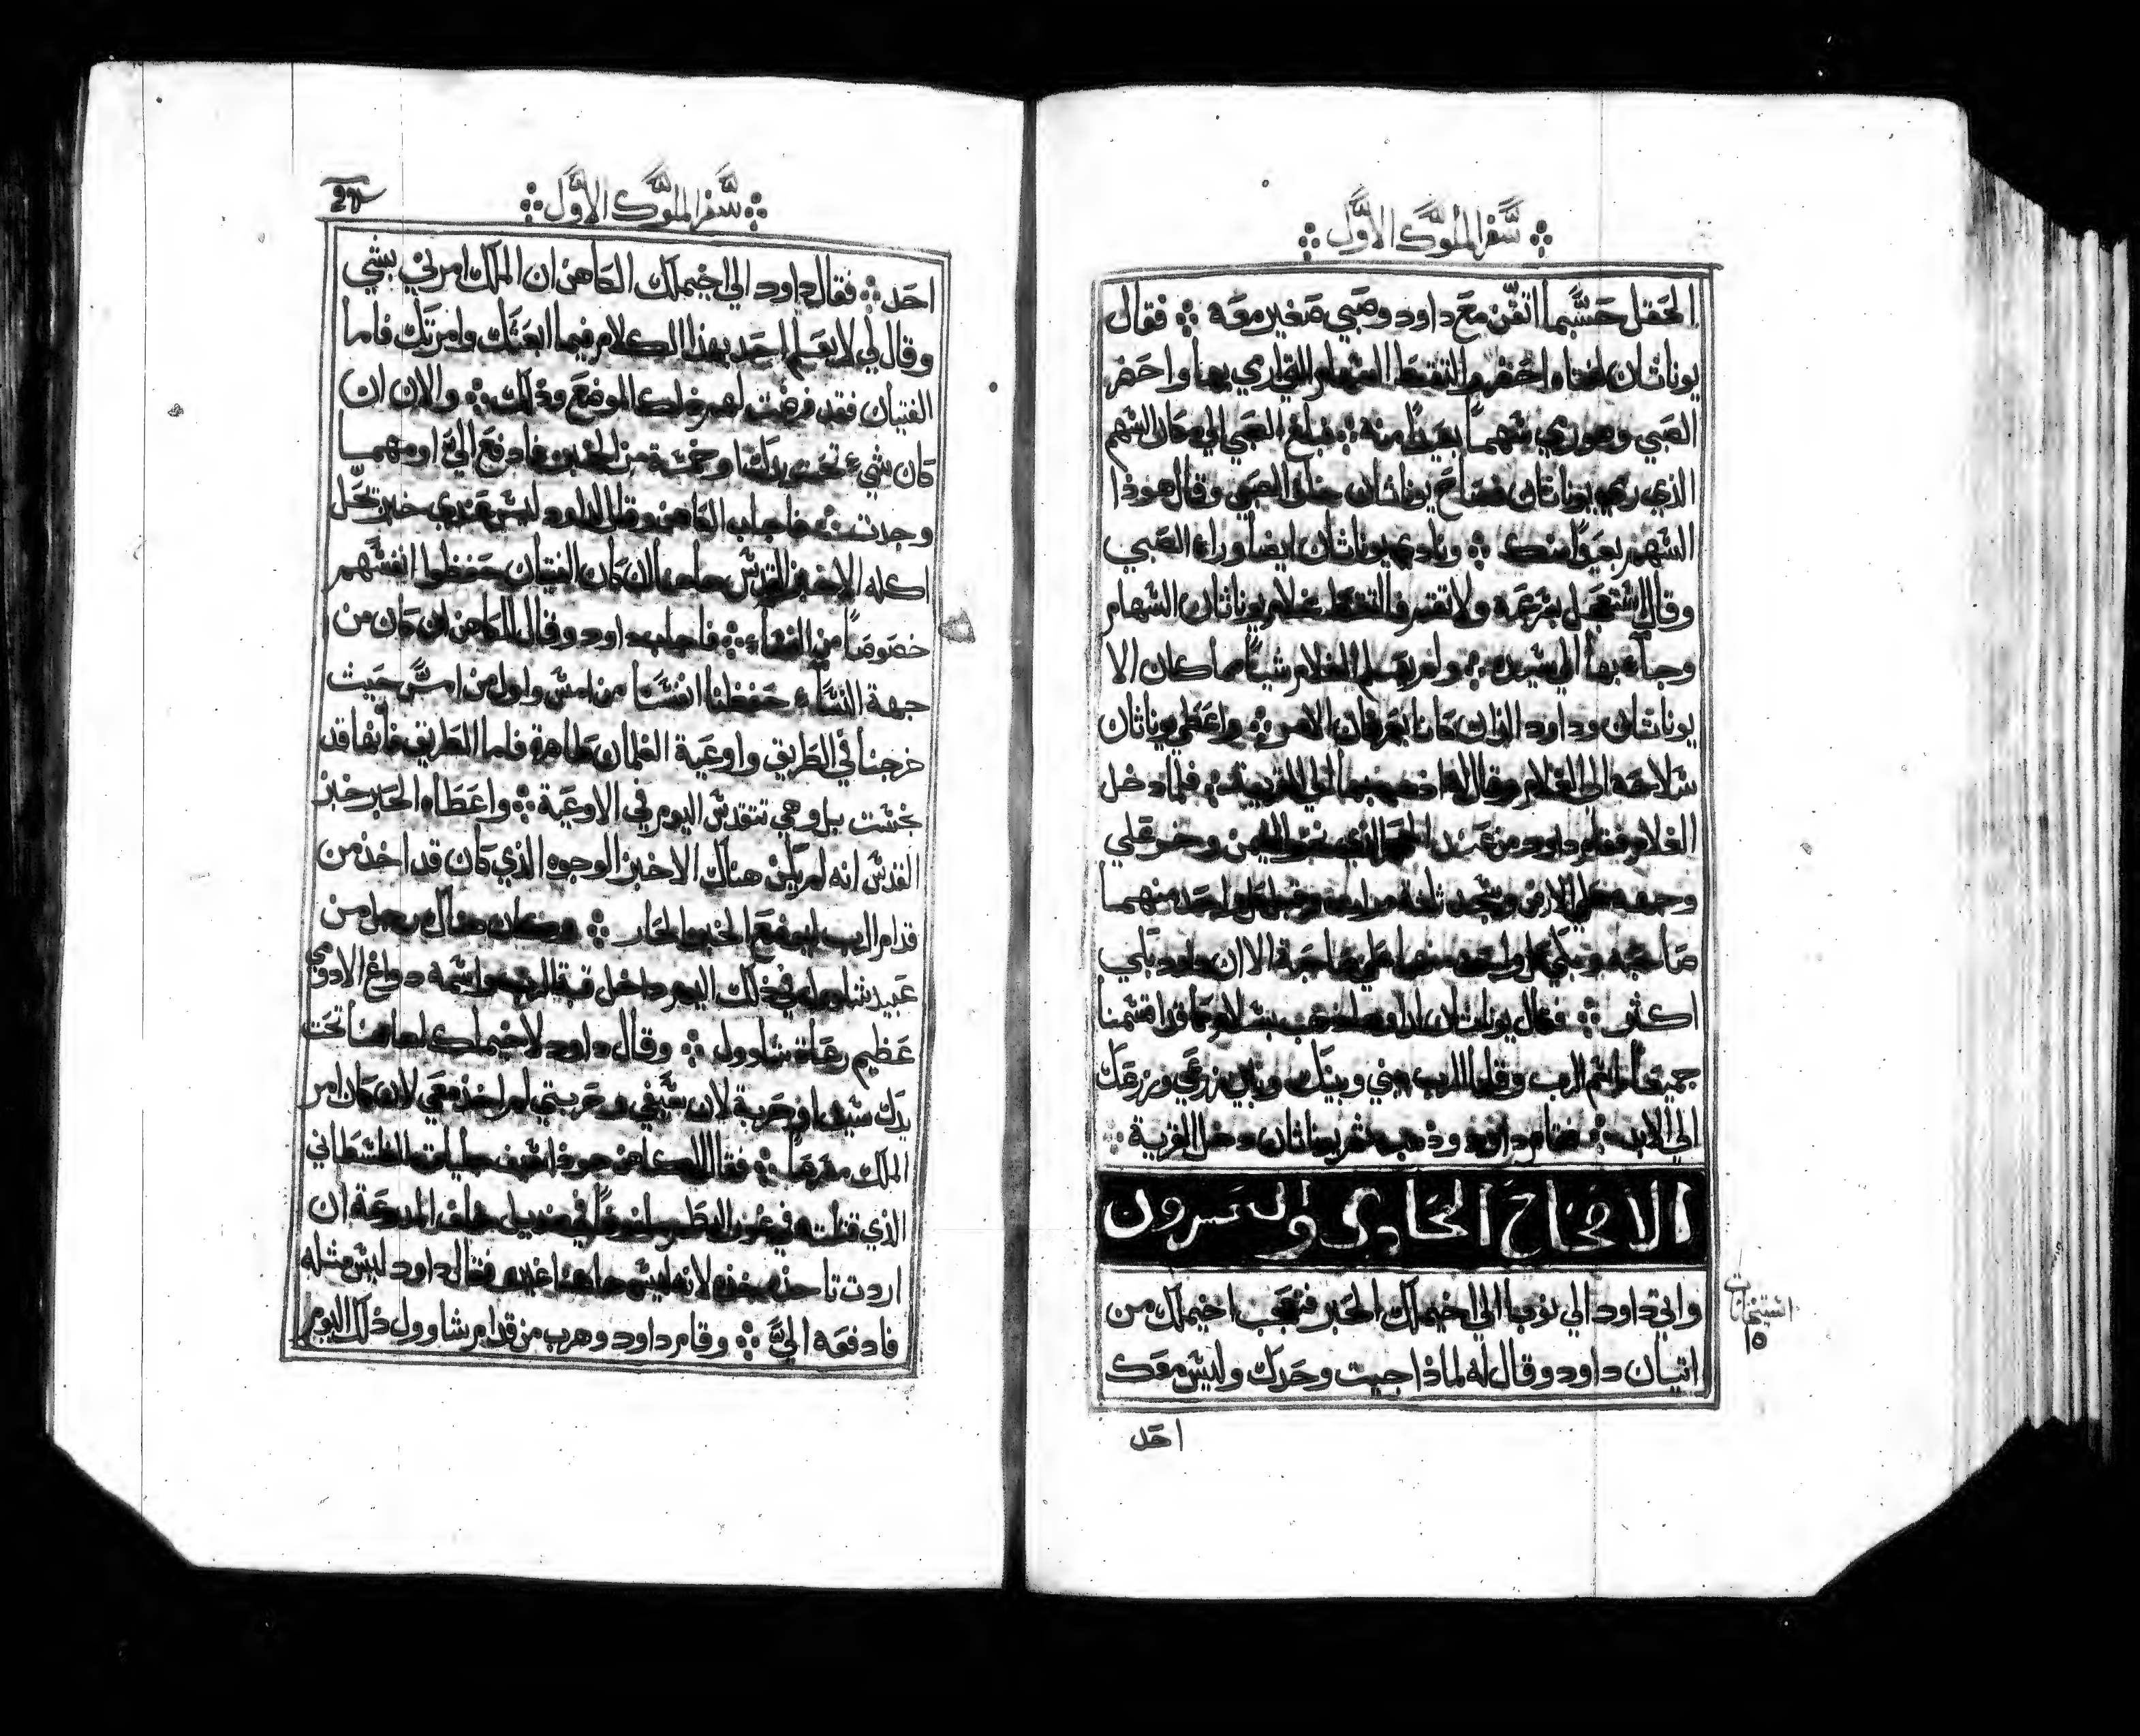 سفر الملوك الاول
الحقل حسبما اتفق مع داود وصبي صغير معه فقال
يوناثان لفتاه احضر والتقط السهام التي ارمي بها واحضر
الصبي وهو رمي سهماً بعيداً منه فبلغ الصبي الي مكان السهم
الذي رمي يوناثان فصاح يوناثان خلف الصبي وقال هوذا
السهم بعيداً منك ونادي يوناثان ايضاً وراء الصبي
وقال استعجل بسرعة ولا تقف فالتقط غلام يوناثان السهام
وجاء بها الي سيده ولم يعلم الغلام شياً مما كان الا
يوناثان وداود اللذان كانا يعرفان الامر واعطي يوناثان
سلاحه الي الغلام وقال له اذهب بها الي القرية فلما دخل
الغلام فقام داود من عند الذي نحو التيمن وخر علي
وجهه علي الارض وسجد ثلثة مرات وقبل كل واحد منهما
صاحبه وبكي كل واحد منهما علي صاحبه الا ان داود بكي
اكثر فقال يوناثان الي داود اذهب بسلام كما قد اقسمنا
جميعاً باسم الرب وقلنا الرب بيني وبينك وبين زرعي وزرعك
الي الابد فقام داود وذهب ثم يوناثان دخل القرية
الاصحاح الحادي والعشرون
واتي داود الي نوب الي اخيملك الحبر فتعجب اخيملك من
اتيان داود وقال له لماذا جيت وحدك وليس معك
احد
سفر الملوك الاول
احد فقال داود الي اخيملك الكاهن ان الملك امرني بشي
وقال لي لا يعلم احد بهذا الكلام فيما ابعثك وامرتك فاما
الفتيان فقد فرضت لهم ذلك الموضع وذلك والان ان
كان شيء تحت يدك او خمسة من الخبز فادفع اليّ او مهما
وجدت فاجاب الكاهن وقال لداود ليس عندي خبز تحل
اكله الا خبز القدس حلص ان كان الفتيان حفظوا انفسهم
خصوصاً من النساء فاجاب داود وقال للكاهن ان كان من
جهة النساء حفظنا انفسنا من امس واول من امس حيث
خرجنا في الطريق واوعية الغلمان طاهرة فاما الطريق فانها قد
نجست بل وهي تتقدس اليوم في الاوعية واعطاه الحبر خبز
القدس انه لم يكن هناك الا خبز الوجوه الذي كان قد اخذ من
قدام الرب ليوضع الخبز الحار وكان هناك رجل من
عبيد شاوول في ذلك اليوم داخل قبة الرب واسمه دواغ الادومي
عظيم رعاة شاوول وقال داود لاخيملك لعل هاهنا تحت
يدك سيف او حربة لان سيفي وحربتي لم اخذ معي لان كان امر
الملك مفرضاً فقال الكاهن هوذا سيف جليات الفلسطاني
الذي قتلته في غور البطم ملفوفاً في منديل خلف المدرعة ان
اردت تاخذه خذه لانه ليس هاهنا غيره فقال داود ليس مثله
فادفعه اليّ وقام داود وهرب من قدام شاوول ذلك اليوم